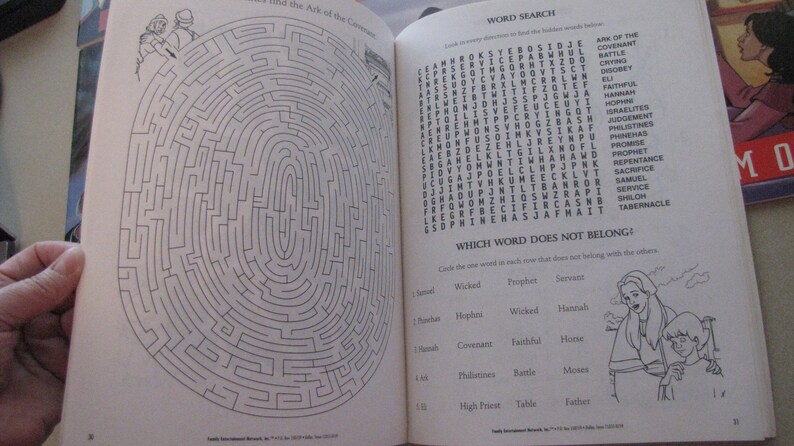 find the Ark of the Covenant.
WORD SEARCH
Look in every direction to find the hidden words below:
C E A M H R O K S Y E B O S I D J E
K C P R S E R V I C E P A B W H U L
T N R E K G Q T M G Q R H T X Z D O
A A S S U O Y C V A Y O Q V T S C T
B T R S N Z F B R X L M C R R L W N
E N L W E I B T W I T I F Z Q T E F
R E P H Q N J D H J S S P J G W J A
N P T Q I L I S V E F E U C E U Y I
A E N R E H M T P P C R Y I N G Q T
C R E U P W O N S V H O G Z B A S H
L K M Q N F U S O I M K V S I K A F
E A E B Z D E Z E H L J R E Y N P U
S B G A H E L K L T G I L X N O F L
P I D V Y O M W N T I W H A H A W D
U C U G A J P O E L C L H P J P N K
D J J I M T V H K U M E E C K L V T
O G H A D U P J N T L T B A N R O R
F R F Q W O M Z H I Q S W Z R A P I
L K E G R F B E C I F I R C A S N B
G S D P H I N E H A S J A F M A I T
ARK OF THE
COVENANT
BATTLE
CRYING
DISOBEY
ELI
FAITHFUL
HANNAH
HOPHNI
ISRAELITES
JUDGEMENT
PHILISTINES
PHINEHAS
PROMISE
PROPHET
REPENTANCE
SACRIFICE
SAMUEL
SERVICE
SHILOH
TABERNACLE
WHICH WORD DOES NOT BELONG?
Circle the one word in each row that does not belong with the others.
1. Samuel Wicked Prophet Servant
2. Phinehas Hophni Wicked Hannah
3. Hannah Covenant Faithful Horse
4. Ark Philistines Battle Moses
5. Eli High Priest Table Father
20
Family Entertainment Network, Inc.™
Family Entertainment Network, Inc.™
21
M O